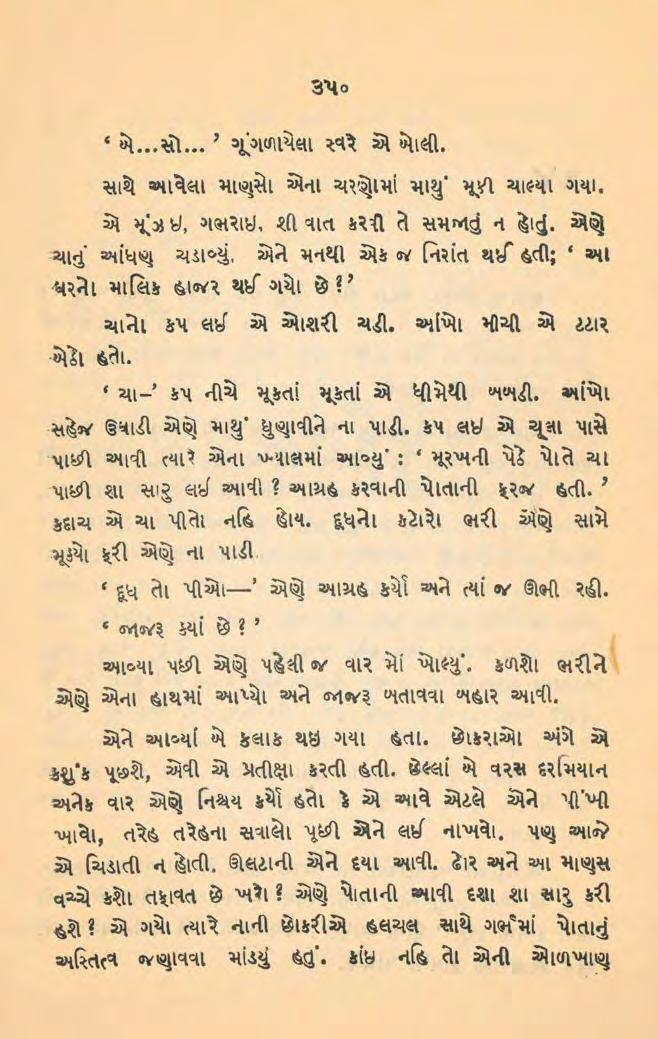 ૩૫૦
‘ બે...સો... ’ ગૂંગળાયેલા સ્વરે એ બોલી.
સાથે આવેલા માણસો એના ચરણોમાં માથું મૂકી ચાલ્યા ગયા.
એ મૂંઝઇ, ગભરાઇ. શી વાત કરવી તે સમજાતું ન હોતું. એણે
ચાનું આંધણ ચડાવ્યું. એને મનથી એક જ નિરાંત થઈ હતી; ‘ આ
ઘરનો માલિક હાજર થઈ ગયો છે ?’
ચાનો કપ લઈ એ ઓશરી ચડી. આંખો મીચી એ ટટાર
બેઠો હતો.
‘ ચા–’ કપ નીચે મૂકતાં મૂકતાં એ ધીમેથી બબડી. આંખો
સહેજ ઉઘાડી એણે માથું ધુણાવીને ના પાડી. કપ લઇ એ ચૂલા પાસે
પાછી આવી ત્યારે એના ખ્યાલમાં આવ્યું : ‘ મૂરખની પેઠે પોતે ચા
પાછી શા સારુ લઇ આવી ? આગ્રહ કરવાની પોતાની ફરજ હતી. ’
કદાચ એ ચા પીતો નહિ હોય. દૂધનો કટોરો ભરી એણે સામે
મૂક્યો ફરી એણે ના પાડી.
‘ દૂધ તો પીઓ—’ એણે આગ્રહ કર્યો અને ત્યાં જ ઊભી રહી.
‘ જાજરૂ ક્યાં છે ? ’
આવ્યા પછી એણે પહેલી જ વાર મોં ખોલ્યું. કળશો ભરીને
એણે એના હાથમાં આપ્યો અને જાજરૂ બતાવવા બહાર આવી.
એને આવ્યાં બે કલાક થઇ ગયા હતા. છોકરાઓ અંગે એ
કશુંક પૂછશે, એવી એ પ્રતીક્ષા કરતી હતી. છેલ્લાં બે વરસ દરમિયાન
અનેક વાર એણે નિશ્ચય કર્યો હતો કે એ આવે એટલે એને પીંખી
ખાવો, તરેહ તરેહના સવાલો પૂછી એને લઈ નાખવો. પણ આજે
એ ચિડાતી ન હોતી. ઊલટાની એને દયા આવી. ઢોર અને આ માણસ
વચ્ચે કશો તફાવત છે ખરો ? એણે પોતાની આવી દશા શા સારુ કરી
હશે ? એ ગયો ત્યારે નાની છોકરીએ હલચલ સાથે ગર્ભમાં પોતાનું
અસ્તિત્વ જણાવવા માંડયું હતું. કાંઇ નહિ તો એની ઓળખાણ